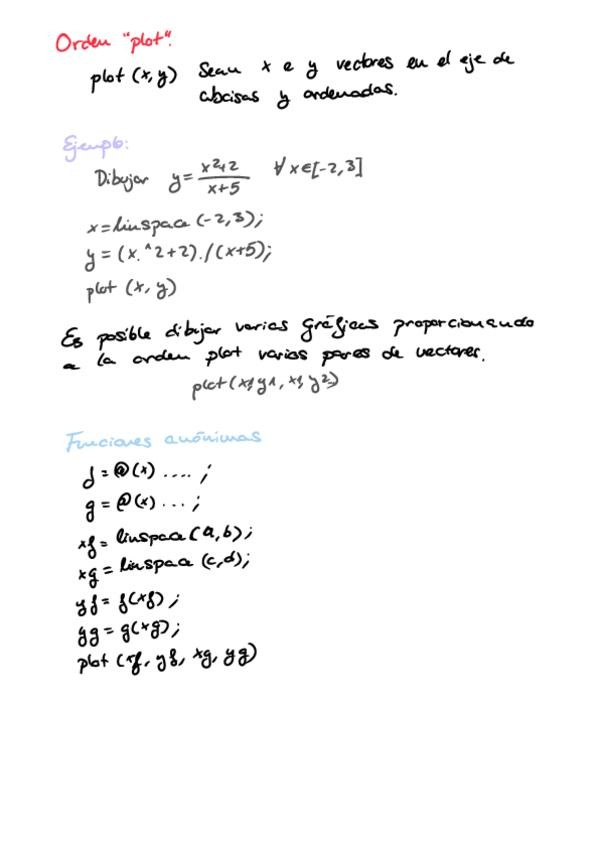 Orden "plot".
plot (x, y) Sean x e y vectores en el eje de
abcisas y ordenadas.
Ejemplo:
Dibujar y = (x²+2)/(x+5) ∀ x∈[-2,3]
x = linspace (-2,3);
y = (x.^2+2)./(x+5);
plot (x, y)
Es posible dibujar varias gráficas proporcionando
a la orden plot varios pares de vectores.
plot(x1,y1, x2, y2)
Funciones anónimas
f = @(x) ....;
g = @(x) ...;
xf = linspace (a,b);
xg = linspace (c,d);
yf = f(xf);
yg = g(xg);
plot (xf, yf, xg, yg)